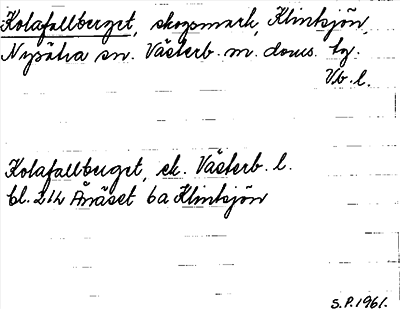 Kolafallberget, skogsmark, Klintsjön,
Nysätra sn. Västerb. m. doms. tg.
Vb. l.
Kolafallberget, sk. Västerb. l.
bl. 214 Ånäset 6a Klintsjön
S.P. 1961.